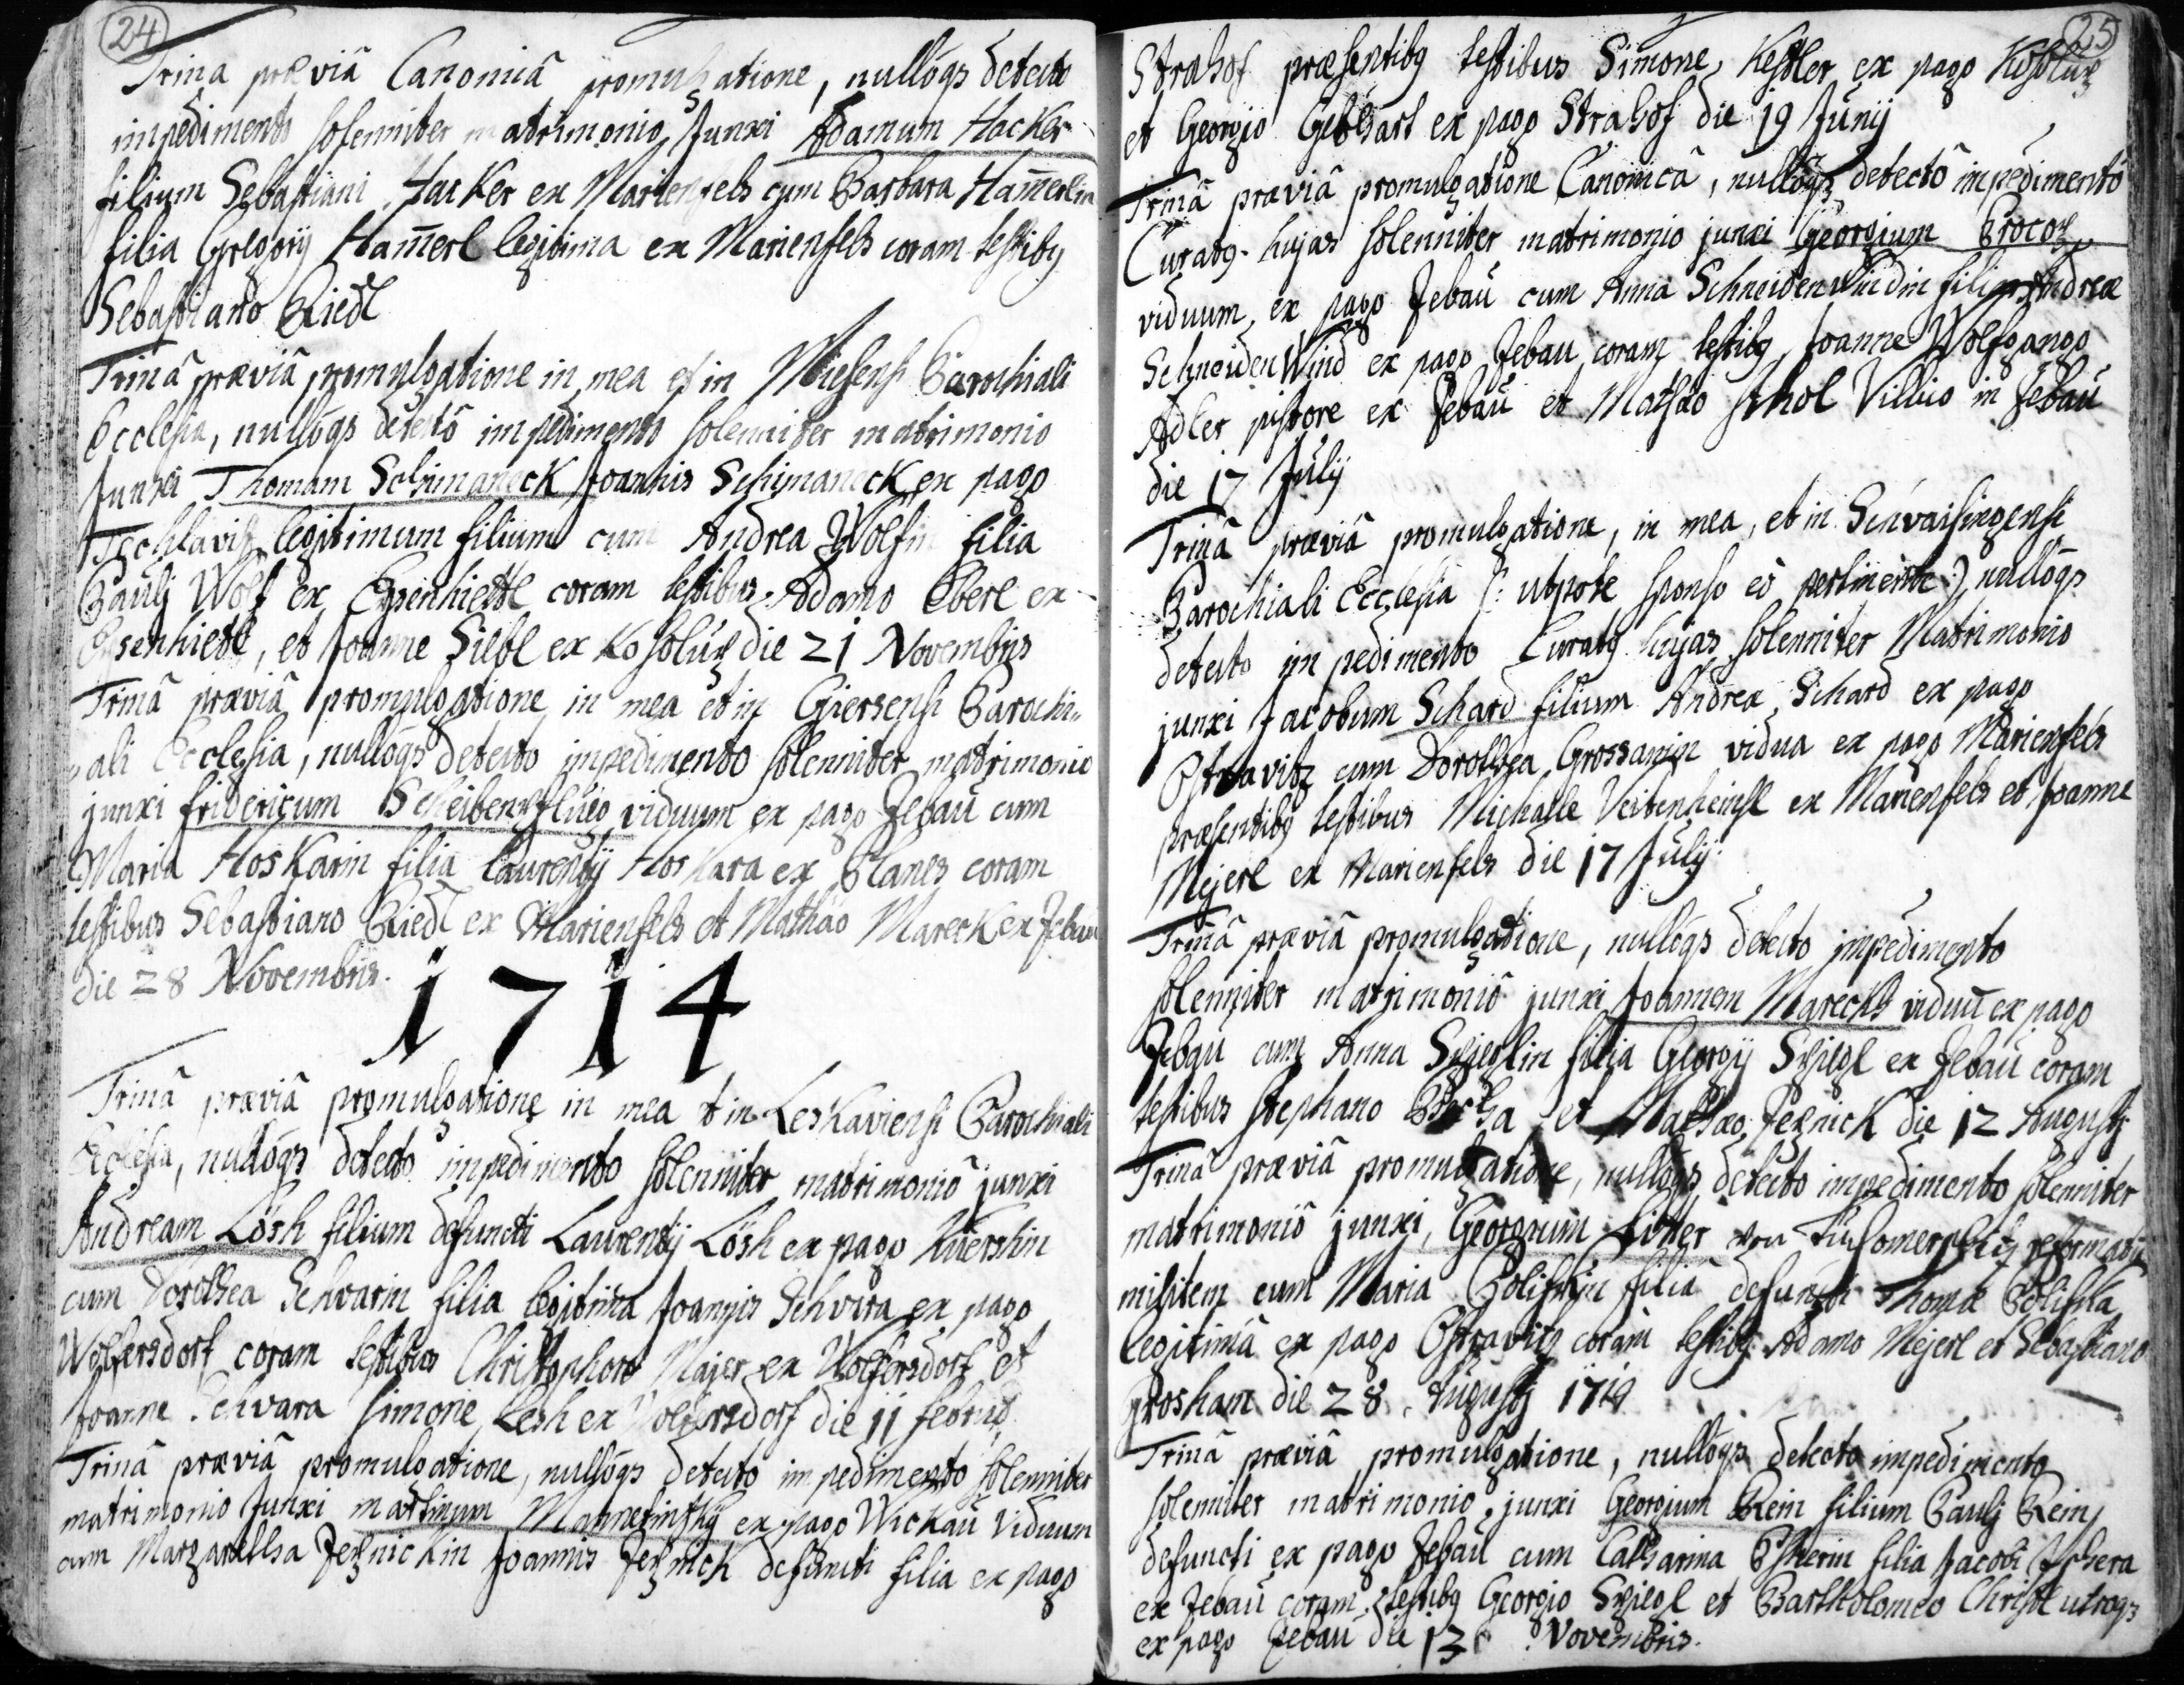 24
Trina præviâ Canonicâ promulgatione, nullóqs detecto
impedimento solenniter matrimonio Junxi Adamum Hacker
filium Sebastiani Hacker ex Marienfels cum Barbara Ham̄erlin
filia Gregorij Ham̄erl legitima ex Marienfels coram testibq
Sebastiano Riedl
Trinâ præviâ promulgatione in mea et in Miesensi Parochiali
Ecclesia, nullóqs detectô impedimento solenniter matrimonio
Junxi Thomam Schimaneck Joannis Schimaneck ex pago
legitimum filium cum Andrea Wolfin filia
Paulj Wolf ex coram testibus Adamo Eberl ex
et Joanne Siebl ex Kosolúz die 21 Novembris
Trinâ præviâ promulgatione in mea et in Parochi=
=ali Ecclesia, nullóqs detecto impedimento solenniter matrimonio
junxi fridericum Scheibenpflúeg viduum ex pago Jebaú cum
Maria Hoskarin filia Laurentij Hoskara ex Planes coram
testibus Sebastiano Riedl ex Marienfels et Mathäo Mareck ex Jebau
die 28 Novembris.
1714
Trinâ præviâ promulgatione in mea et in Leskaviensi Parochiali
Ecclesia, nullóqs detecto impedimento solenniter matrimoniô junxi
Andream Lösh filium defuncti Laurentij Lösh ex pago
cum Dorothea Schvarin filia legitima Joannis Schvara ex pago
Wolfersdorf coram testibus Christophoro Majer ex Wolfersdorf et
Joanne Schvara Simone Lesh ex Wolfersdorf die 11 febrúa
Trinâ præviâ promulgatione, nullóqs detecto impedimento solenniter
matrimonio Junxi martinum ex pago Wickaú Viduum
cum Margarettha Jeznickin Joannis Jeznick defúncti filia ex pago
25
Strahof præsentibq testibus Simone Kestler ex pago Kosolúz
et Georgio Gebhart ex pago Strahof die 19 Júnij
Trinâ præviâ promulgatione Canonicâ, nullóqs detectô impedimentô
Curatq hujas solenniter matrimonio junxi Georgium
viduum ex pago Jebaú cum Anna Schneidenwindin filia Andreæ
SchneidenWind ex pago Jebau coram testibq Joanne Wolfgango
Adler pistore ex Jebaú et Mathäo Schol Villico in Jebaú
die 17 Júlij
Trinâ præviâ promulgatione, in mea, et in Schvaisingensi
Parochiali Ecclesia (: utpote sponso eò pertinente :) nullóqs
detecto impedimento Curatq hujas solenniter Matrimonio
junxi Jacobum Schard filium Andreæ Schard ex pago
Ostravitz cum Dorothea Grossanin vidua ex pago Marienfels
præsentibq testibus Michaele Veitenheinsl ex Marienfels et Joanne
Mejerl ex Marienfels die 17 Júlij.
Trinâ præviâ promulgatione, nullóqs detecto impedimento
solenniter matrimoniô junxi Joannem Mareckh viduū ex pago
Jebaú cum Anna Spieglin filia Georgij Spiegl ex Jebaú coram
testibus Stephano et Mathæo Jeznick die 12 Augusti
Trinâ præviâ promulgatione, nullóqs detecto impedimento solenniter
matrimoniô junxi, Georgium
militem cum Maria Polifkin filiâ defuncti Thomæ Polifka
legitimâ ex pago Ostravitz coram testibq Adamo Mejerl et Sebastiano
Groshan die 28 Augusti 1714
Trinâ præviâ promulgatione, nullóqs detecto impedimento
solenniter matrimonio junxi Georgium Rein filium Paulj Rein
defuncti ex pago Jebaú cum Catharina filia Jacobi
ex Jebaú coram testibq Georgio Spiegl et Bartholomeo Christl utroqs
ex pago Jebaú die 13 Novembris.